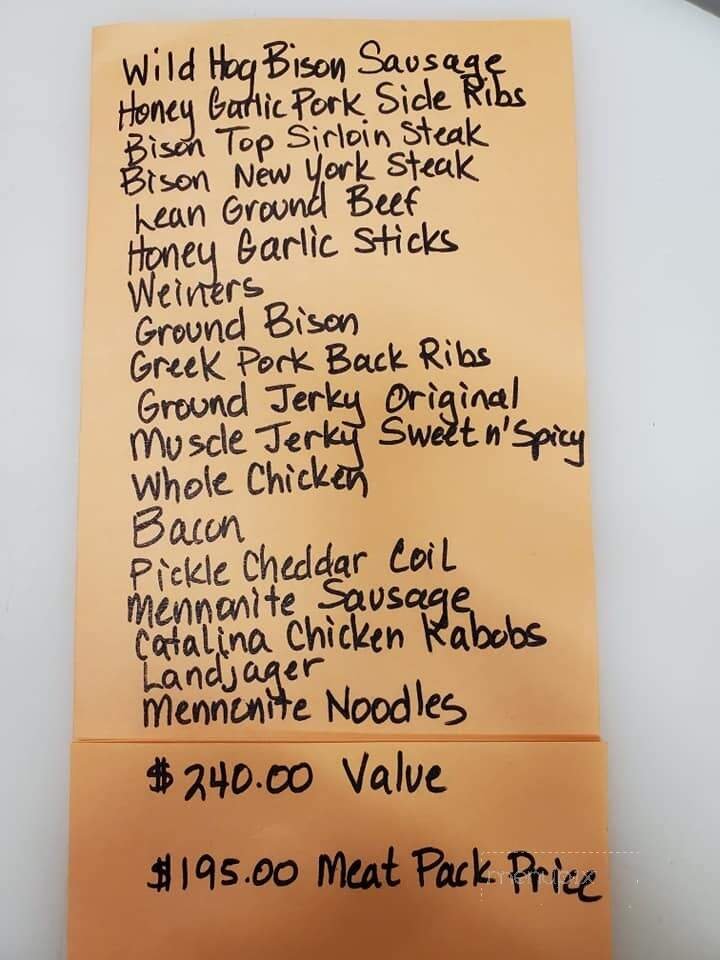 Wild Hog Bison Sausage
Honey Garlic Pork Side Ribs
Bison Top Sirloin Steak
Bison New York Steak
Lean Ground Beef
Honey Garlic Sticks
Weiners
Ground Bison
Greek Pork Back Ribs
Ground Jerky Original
Muscle Jerky Sweet n' Spicy
Whole Chicken
Bacon
Pickle Cheddar Coil
Mennonite Sausage
Catalina Chicken Kabobs
Landjager
Mennonite Noodles
$240.00 Value
$195.00 Meat Pack Price
menupix